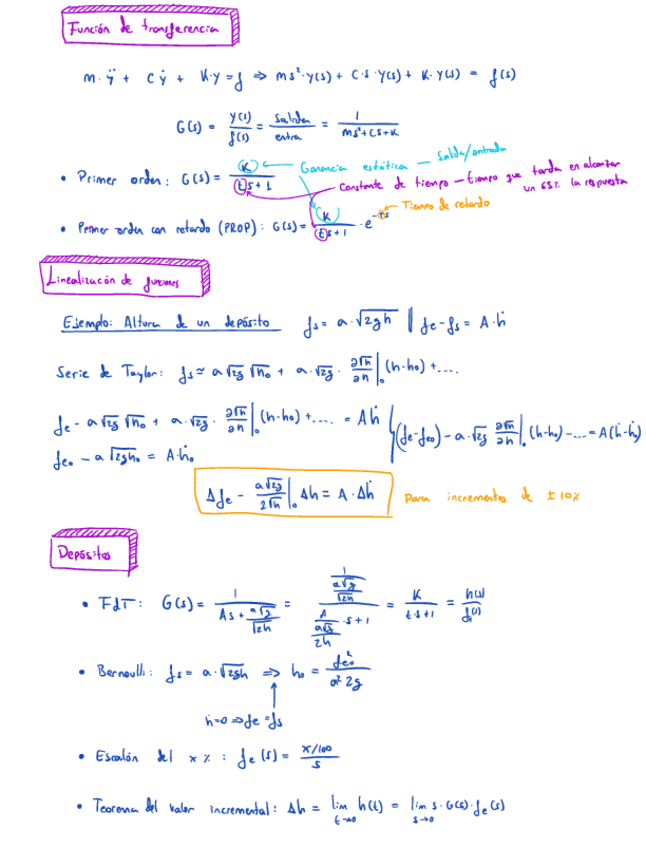 Función de transferencia
m·ÿ + cẏ + K·y = f ⇒ ms²·y(s) + c·s·y(s) + K·y(s) = f(s)
G(s) = y(s)/f(s) = Salida/entra = 1/(ms²+cs+K)
• Primer orden: G(s) = K/(ts+1)
Ganancia estática — Salida/entrada
Constante de tiempo – tiempo que tarda en alcanzar
un 63% la respuesta
• Primer orden con retardo (PROP): G(s) = K/(ts+1) · e^(-rs)
Tiempo de retardo
Linealización de funciones
Ejemplo: Altura de un depósito fs = a·√2gh || fe-fs = A·ḣ
Serie de Taylor: fs ≃ a√2g √h₀ + a·√2g · ∂√h/∂h |₀ (h-h₀) + ....
fe - a√2g √h₀ + a·√2g · ∂√h/∂h |₀ (h-h₀) + .... = Aḣ
fe₀ - a√2gh₀ = A·ḣ₀
(fe-fe₀) - a·√2g ∂√h/∂h |₀ (h-h₀) - .... = A(ḣ-ḣ₀)
Δfe - a√2g/2√h |₀ Δh = A·Δḣ Para incrementos de ±10%
Depósitos
• FdT: G(s) = 1/(As + a√g/√2h) = (1/(a√g/√2h))/((A/(a√g/2h))·s+1) = K/(t·s+1) = h(s)/fe(s)
• Bernoulli: fs = a·√2gh ⇒ h₀ = fe₀²/(a²2g)
ḣ=0 ⇒ fe=fs
• Escalón del x %: fe(s) = (x/100)/s
• Teorema del valor incremental: Δh = lim t→∞ h(t) = lim s→0 s·G(s)·fe(s)